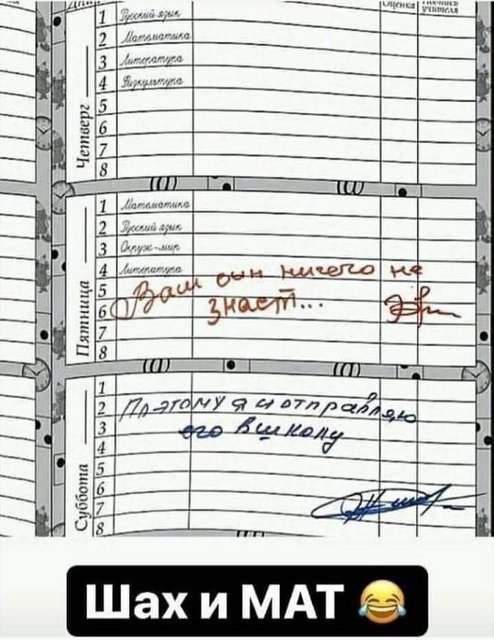 Оценка
учителя
Четверг
1 Русский язык
2 Математика
3 Литература
4 Физкультура
5
6
7
8
Пятница
1 Математика
2 Русский язык
3 Окруж-мир
4 Литература
5
6
7
8
Ваш сын ничего не
знает...
Суббота
1
2
3
4
5
6
7
8
Поэтому я и отправляю
его в школу
Шах и МАТ 😂